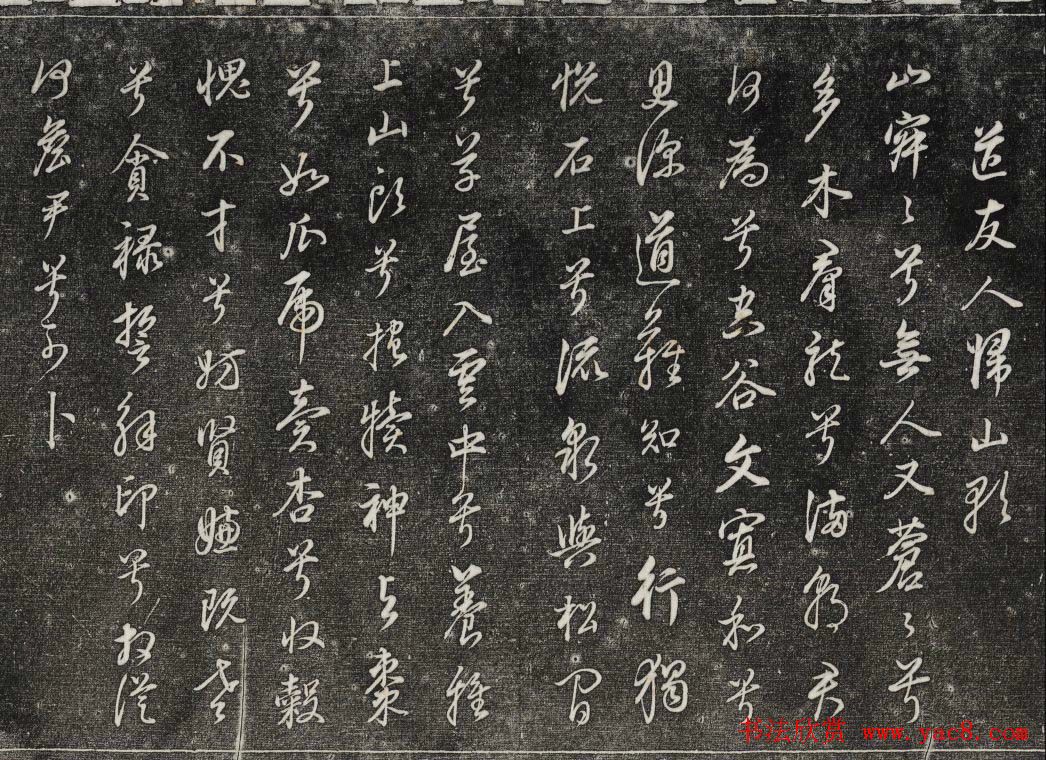 送友人歸山歌
山寂〻兮無人又蒼〻兮
多木群龍兮滿朝君
何為兮空谷文寡和兮
思深道難知兮行獨
悅石上兮流泉與松間
兮草屋入雲中兮養雞
上山頭兮抱犢神与棗
兮如瓜虎賣杏兮收穀
愧不才兮妨賢嫌既老
兮貪祿誓解印兮相從
何詹尹兮可卜
书法欣赏 www.yac8.com